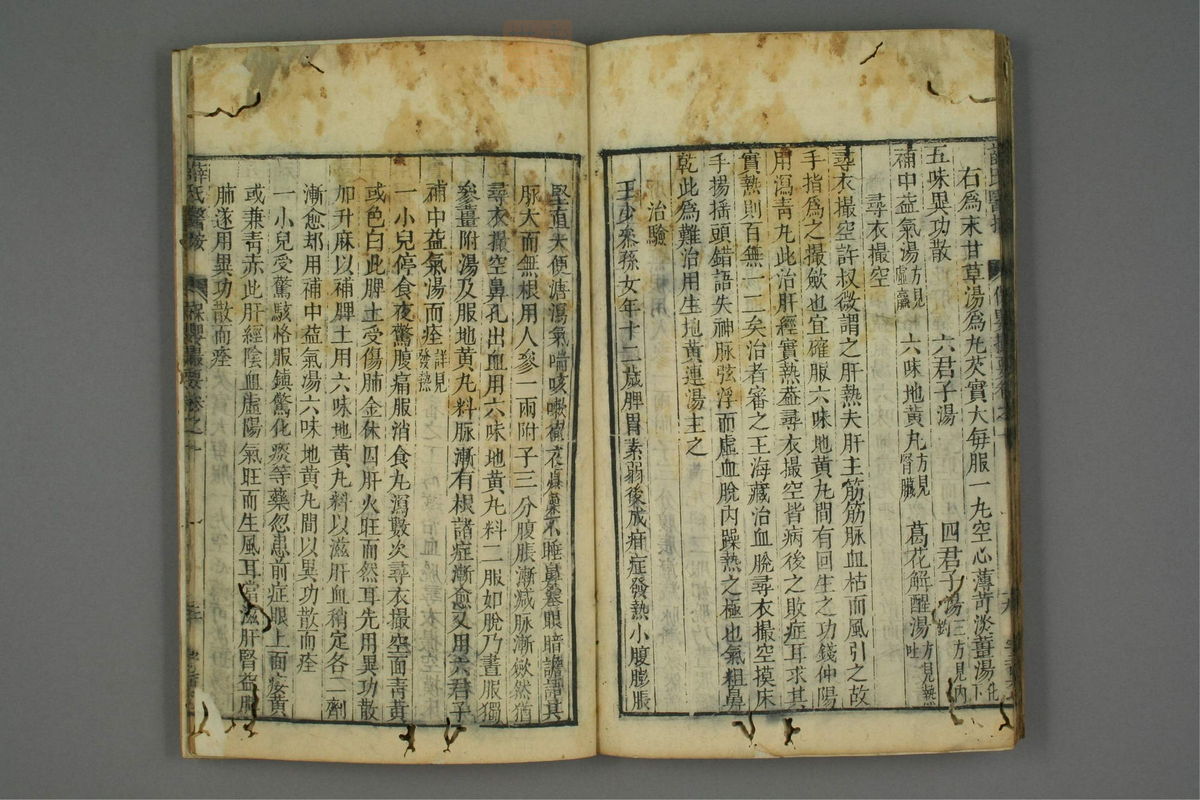 右爲末甘草湯爲丸芡實大每服一丸空心薄荷淡薑湯化下
五味異功散　六君子湯　四君子湯三方見內釣
補中益氣湯方見虛羸　六味地黃丸方見腎臟　葛花解酲湯方見熱吐
尋衣撮空
尋衣撮空許叔微謂之肝熱夫肝主筋筋脉血枯而風引之故
手指爲之撮歛也宜確服六味地黃丸間有回生之功錢仲陽
用瀉青丸此治肝經實熱葢尋衣撮空皆病後之敗症耳求其
實熱則百無一二矣治者審之王海藏治血脫尋衣撮空摸床
手揚揺頭錯語失神脉弦浮而虛血脫内躁熱之極也氣粗鼻
乾此爲難治用生地黃連湯主之
治驗
王少叅孫女年十二歲脾胃素弱後成疳症發熱小腹膨脹
堅直大便溏瀉氣喘咳嗽徹夜煩藁不睡鼻塞眼暗譫語其
脉大而無根用人參一兩附子三分腹脹漸减脉漸歛然猶
尋衣撮空鼻孔出血用六味地黃丸料二服如脫乃晝服獨
參薑附湯及服地黃丸料脉漸有根諸症漸愈又用六君子
補中益氣湯而痊詳見發熱
一小兒停食夜驚腹痛服消食丸瀉數次尋衣撮空面青黃
或色白此脾土受傷肺金休囚肝火旺而然耳先用異功散
加升麻以補脾土用六味地黃丸料以滋肝血稍定各二劑
漸愈却用補中益氣湯六味地黃丸間以異功散而痊
一小兒受驚駭格服鎮驚化痰等藥忽患前症眼上面痿黃
或兼靑赤此肝經陰血虛陽氣旺而生風耳當滋肝腎益脾
肺遂用異功散而痊
薛氏醫按　保嬰撮要卷之十